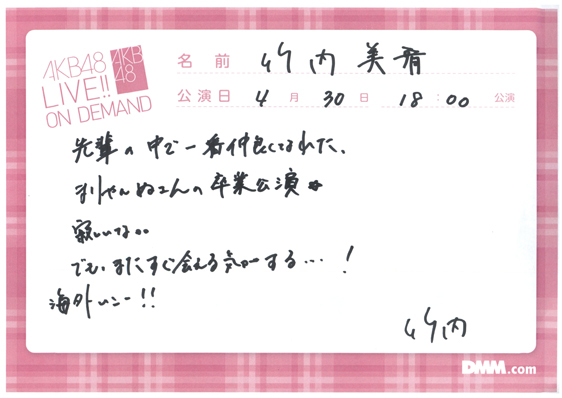 AKB48
LIVE!!
ON DEMAND
AKB
48
名前 竹内美宥
公演日 4月30日 18:00 公演
先輩の中で一番仲良くてくれた、
まりやんぬさんの卒業公演☆
寂しいな。。
でも、まだすぐ会える気がする…!
海外いこー!!
竹内
DMM.com